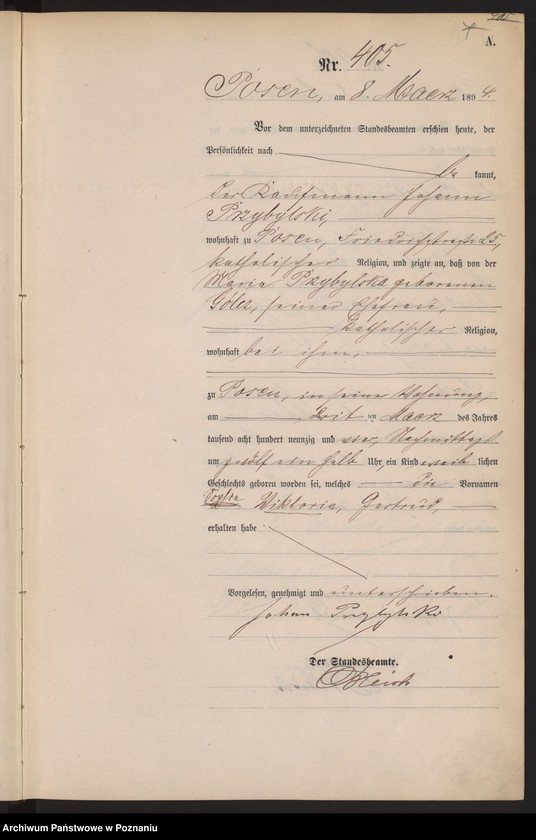 405
A.
Nr. 405.
Posen, am 8. Maerz 1894.
Vor dem unterzeichneten Standesbeamten erschien heute, der
Persönlichkeit nach
be kannt,
der Kaufmann Johann
Przybylski,
wohnhaft zu Posen, Friedrichstraße 25,
katholischer Religion, und zeigte an, daß von der
Maria Przybylska geborenen
seiner Ehefrau,
katholischer Religion,
wohnhaft bei ihm,
zu Posen, in seiner Wohnung,
am ten Maerz des Jahres
tausend acht hundert neunzig und vier, Nachmittags
um zwölf ein halb Uhr, ein Kind weib lichen
Geschlechts geboren worden sei, welches die Vornamen
Sophie Wiktoria, Gertrud,
erhalten habe
Vorgelesen, genehmigt und unterschrieben.
Johan Przybylski
Der Standesbeamte.
Archiwum Państwowe w Poznaniu